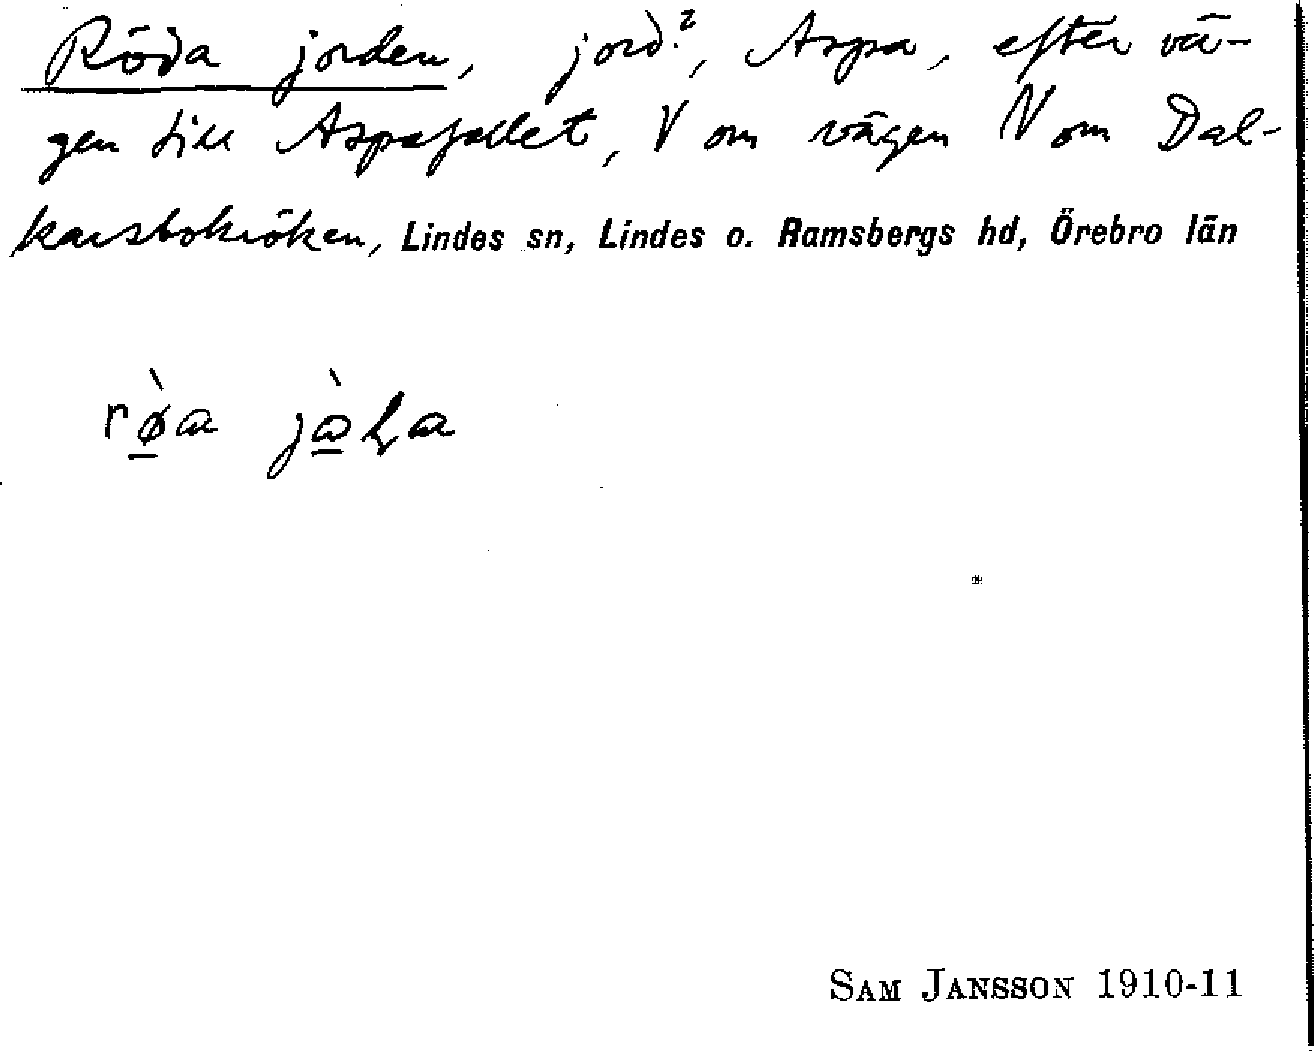 Röda jorden, jord?, Aspa, efter vä-
gen till Aspafallet, V om vägen N om Dal-
karsbokröken, Lindes sn, Lindes o. Ramsbergs hd, Örebro län
rø̀a
SAM JANSSON 1910-11